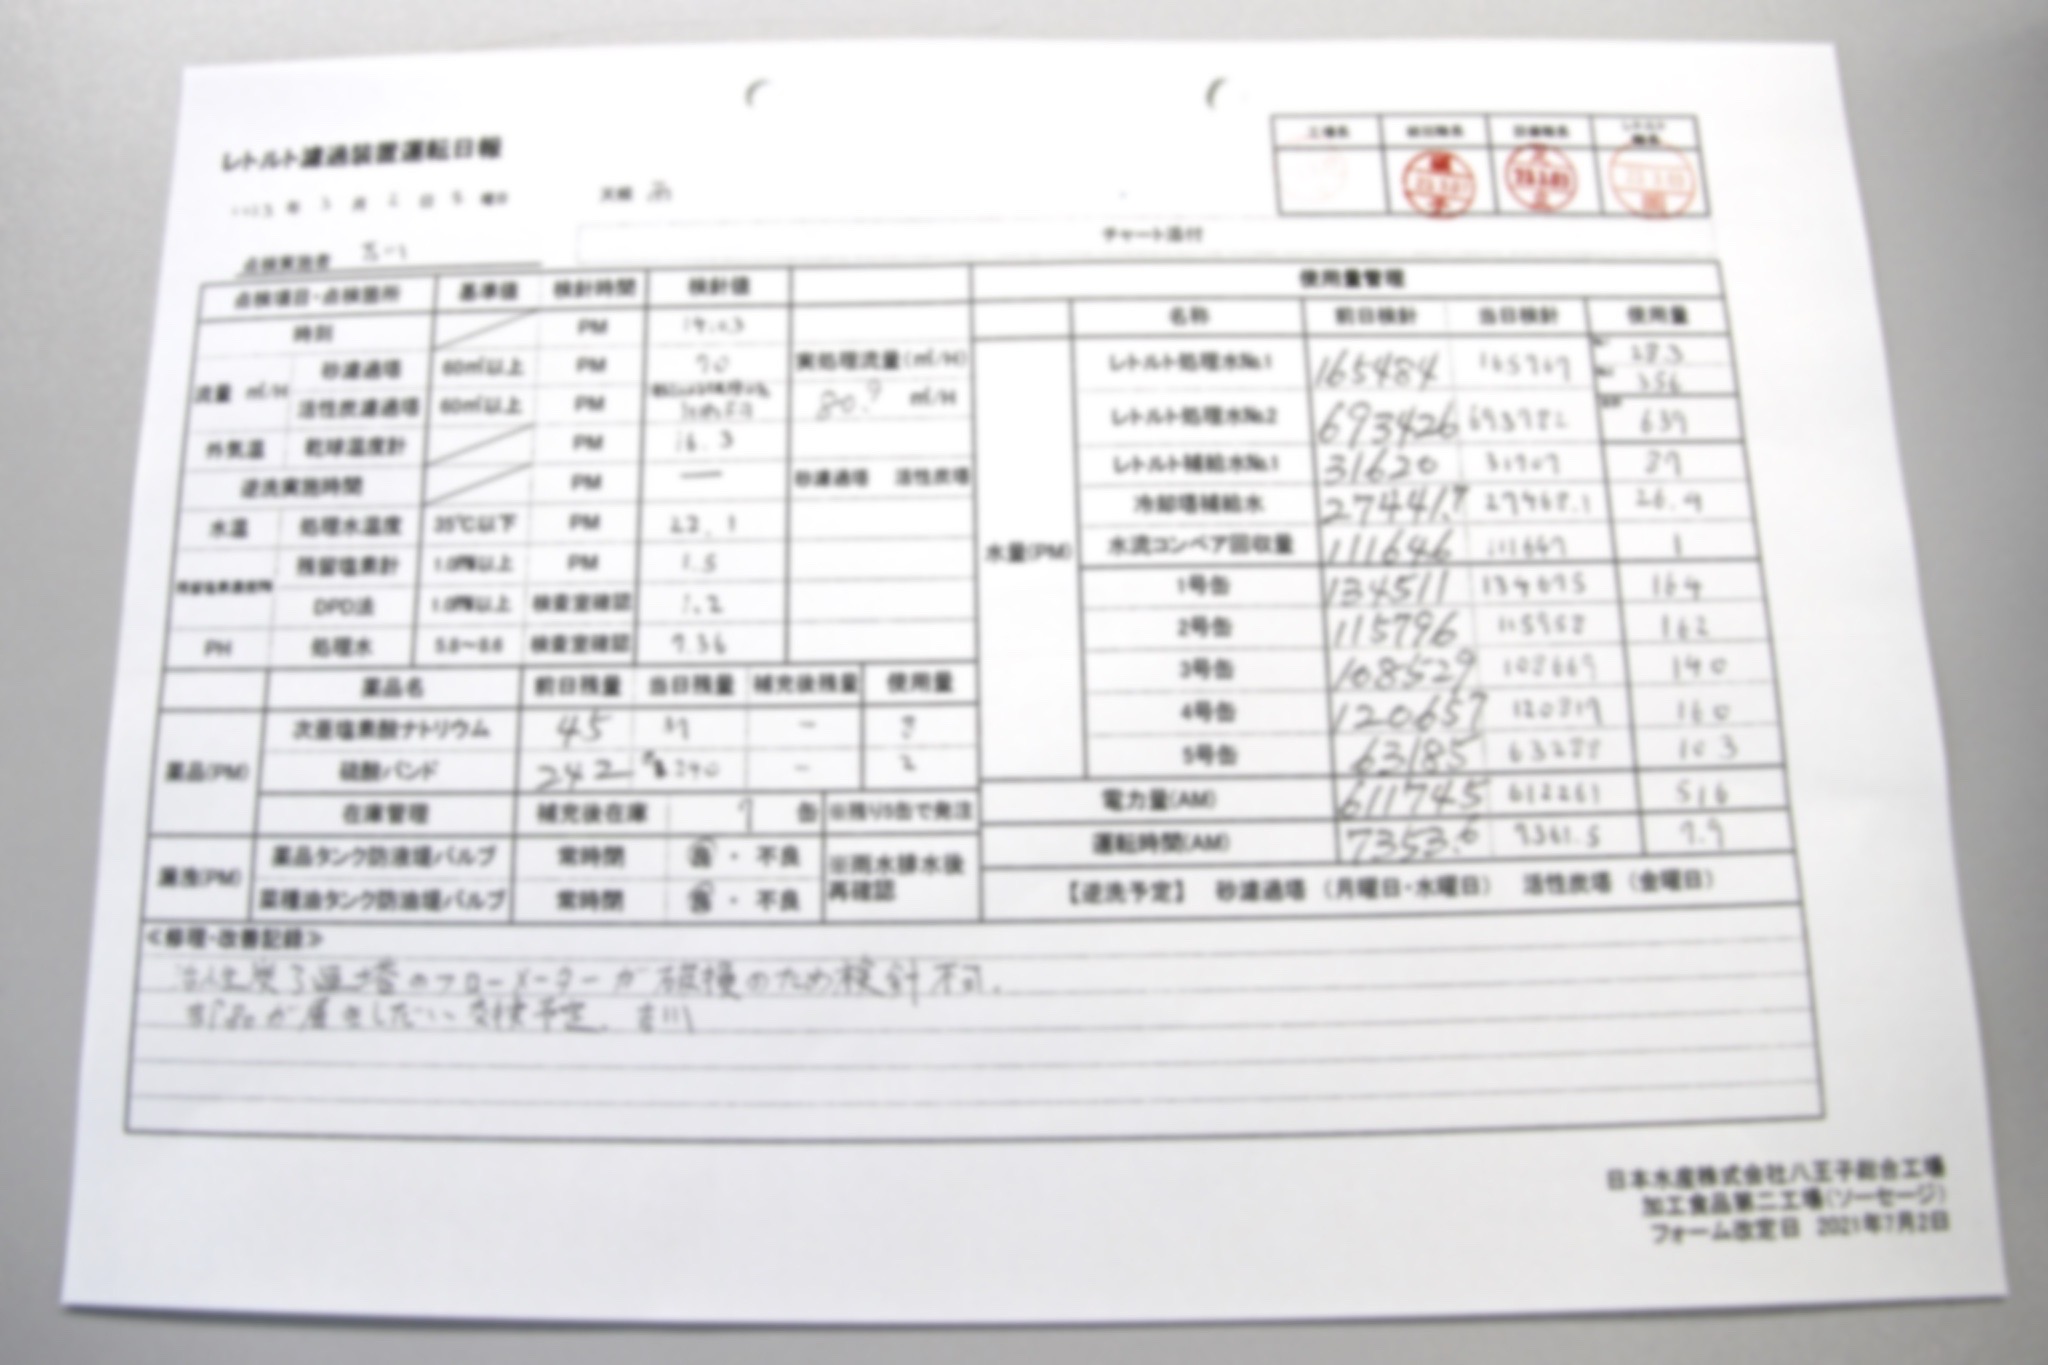 レトルト濾過装置運転日報
年 3 月 日 曜日 天候
点検実施者
チャート添付
工場長 設備職長 職長
点検項目・点検箇所 基準値 検針時間 検針値
時刻 PM
流量 ㎥/H 砂濾過塔 60㎥以上 PM 70 実処理流量(㎥/H)
活性炭濾過塔 60㎥以上 PM 80.9 ㎥/H
外気温 乾球温度計 PM 16.3
逆洗実施時間 PM ー 砂濾過塔 活性炭塔
水温 処理水温度 35℃以下 PM 22.1
残留塩素計 1.0PPM以上 PM 1.5
DPD法 1.0PPM以上 検査室確認 1.2
PH 処理水 5.8～8.6 検査室確認 7.36
薬品名 前日残量 当日残量 補充後残量 使用量
薬品(PM) 次亜塩素酸ナトリウム 45 37 - 8
硫酸バンド 242 240 - 2
在庫管理 補充後在庫 缶 ※残り5缶で発注
漏洩(PM) 薬品タンク防液堤バルブ 常時閉 良・不良 ※雨水排水後再確認
菜種油タンク防油堤バルブ 常時閉 良・不良
使用量管理
名称 前日検針 当日検針 使用量
水量(PM)
レトルト処理水№1 165484 165767 283
356
レトルト処理水№2 693426 693782 639
レトルト補給水№1 31620
冷却塔補給水 27441. 26.9
水流コンベア回収量 111646 111647 1
1号缶 134511 134675 164
2号缶 115796 115958 162
3号缶 108529 108669 140
4号缶 120657 120817 160
5号缶 63185 63288 103
電力量(AM) 611745 612261 516
運転時間(AM) 7353.6 7361.5 7.9
【逆洗予定】 砂濾過塔 (月曜日・水曜日) 活性炭塔 (金曜日)
<修理・改善記録>
活性炭ろ過塔のフローメーターが破損のため検針不可.
部品が届きしだい交換予定. 古川
日本水産株式会社八王子総合工場
加工食品第二工場(ソーセージ)
フォーム改定日 2021年7月2日